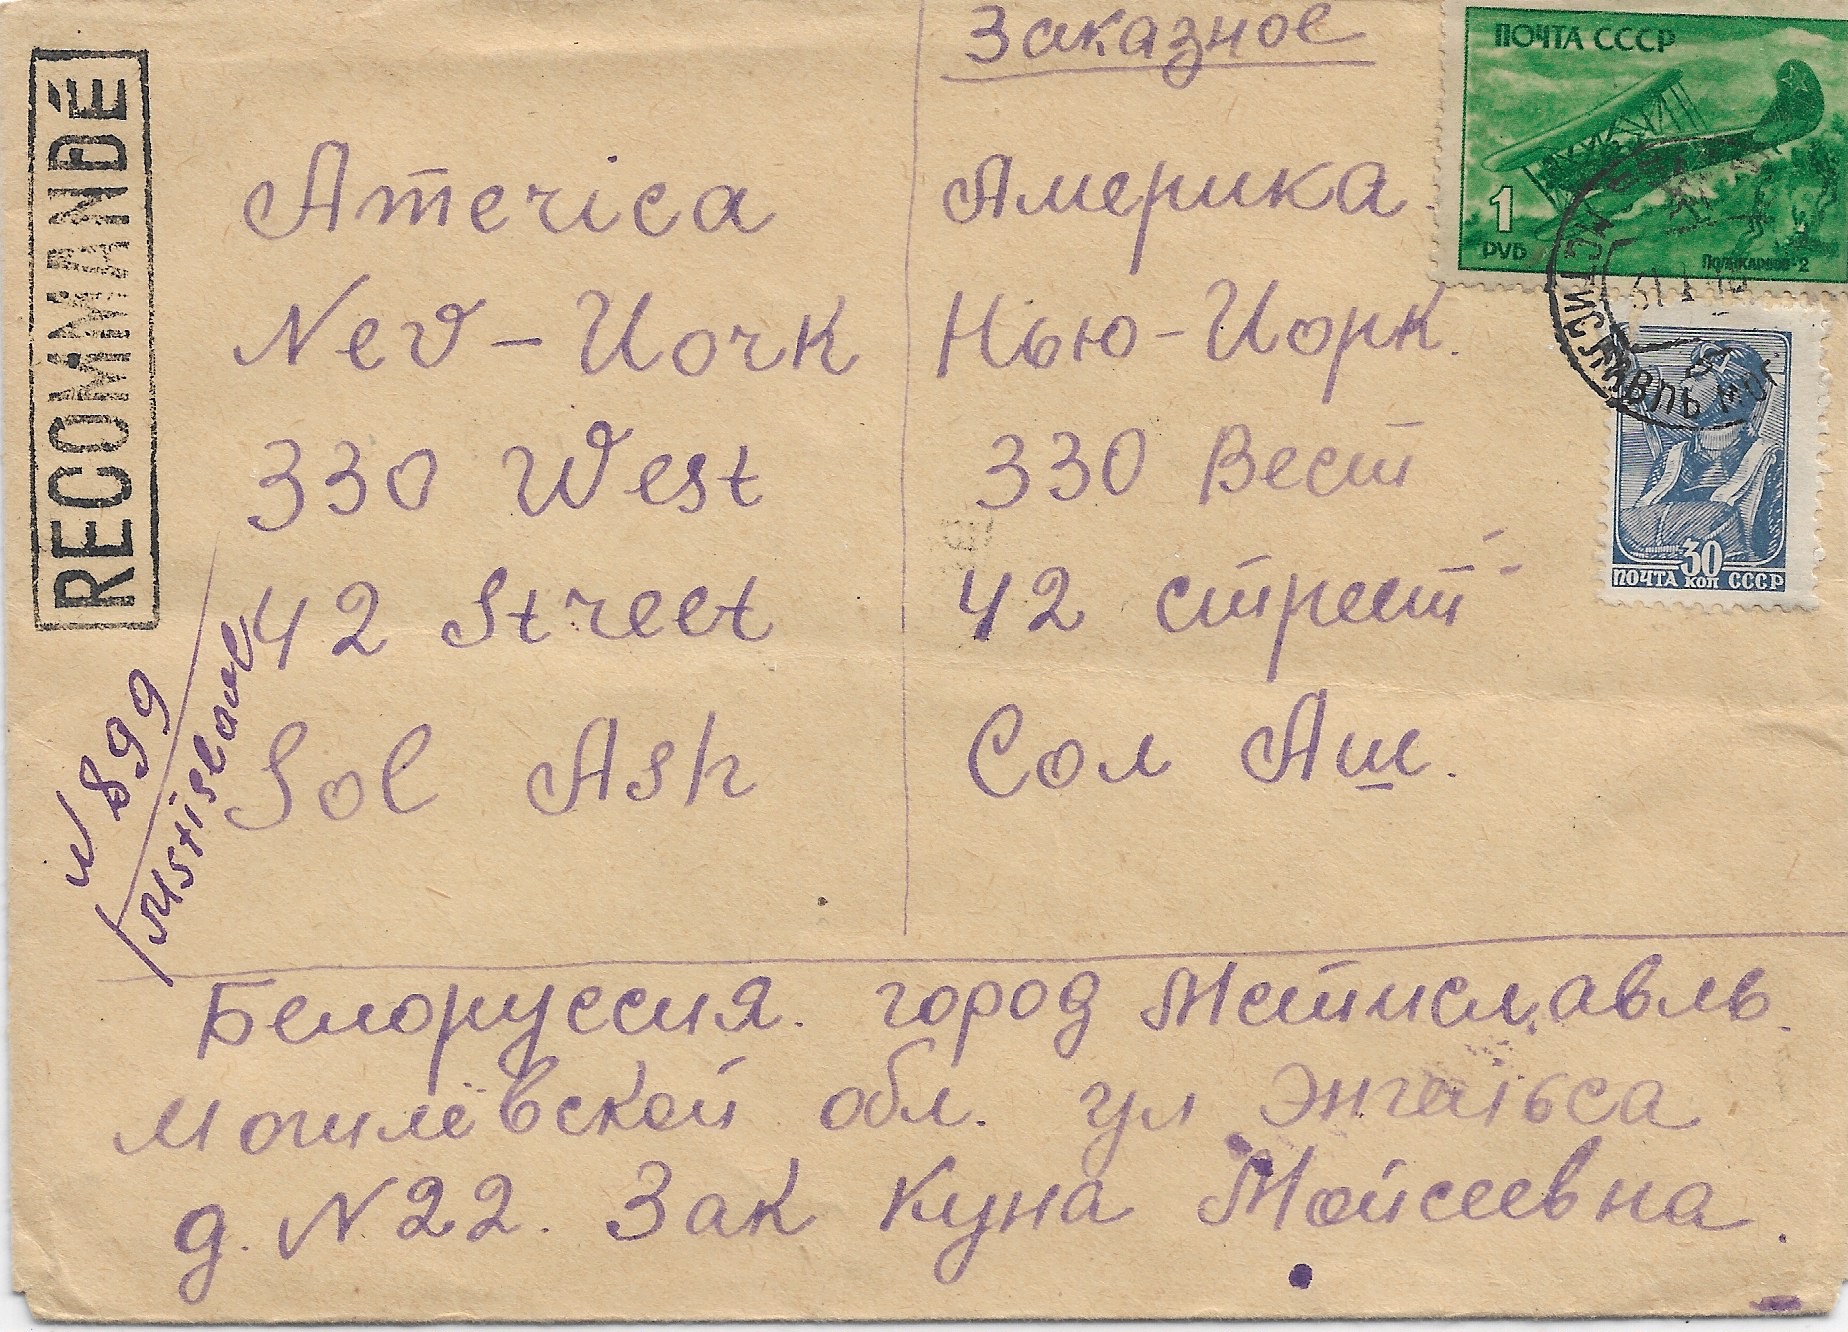 Заказное
RECOMMANDÉ
America
Nev - Uork
330 West
42 Street
Sol Ash
Америка.
Нью-Иорк.
330 Вест
42 стреет
Сол Аш.
N 899
Mstislavl
ПОЧТА СССР
1
РУБ
Поликарпов-2
МСТИСЛАВЛЬ МОГ
30
ПОЧТА КОП СССР
Белоруссия. город Мстиславль.
Могилёвской обл. ул Энгельса
д. N22. Зак Куна Мойсеевна.